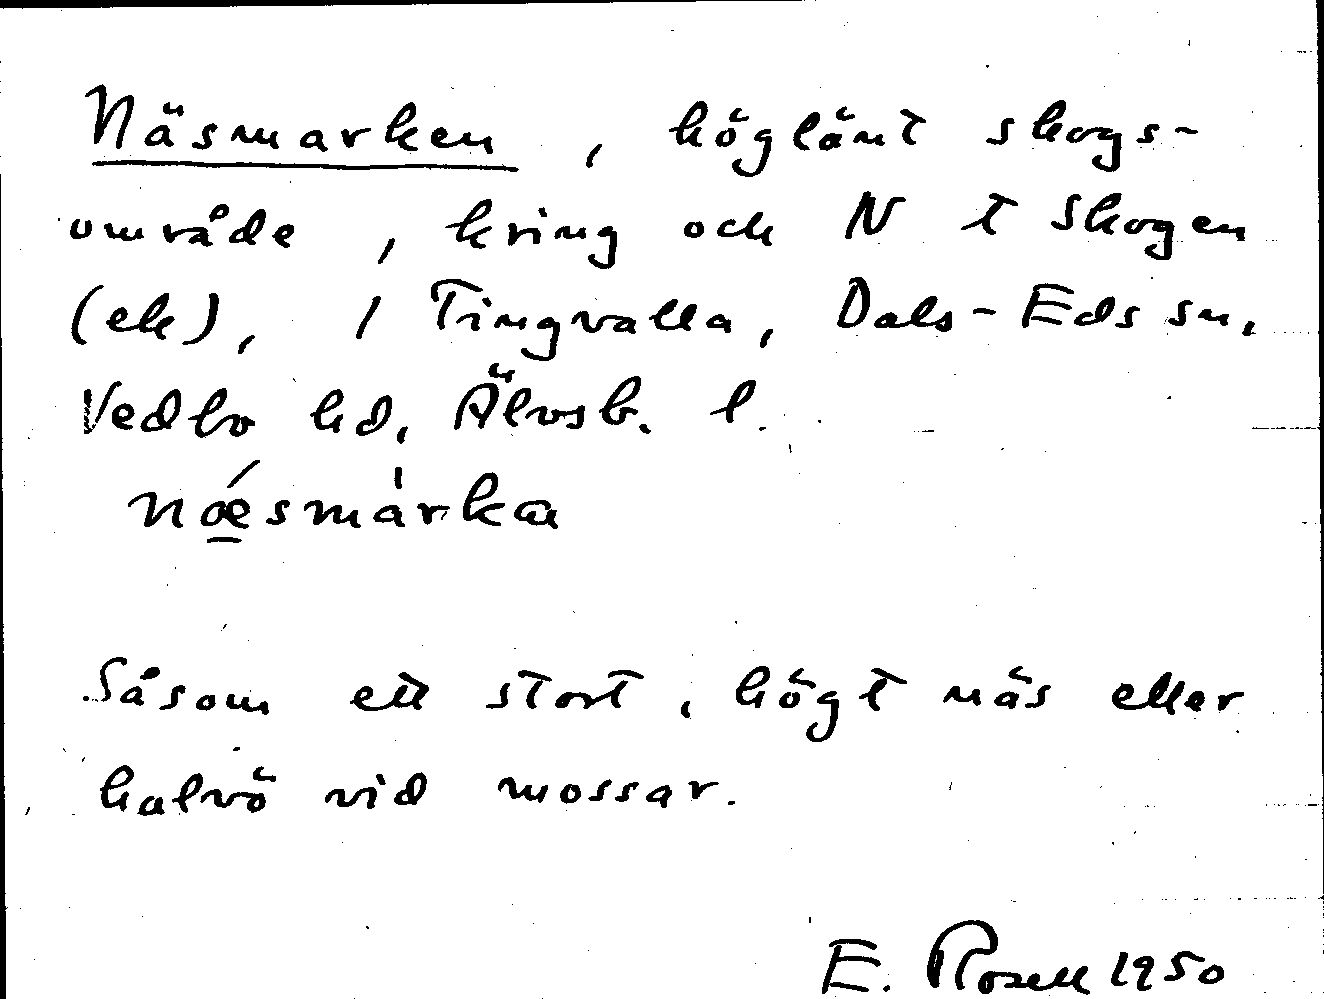 Näsmarken, höglänt skogs-
område, kring och N t Skogen
(ek), / Tingvalla, Dals-Eds sn,
Vedbo hd, Älvsb. l.
nǽ̲smàrka
Såsom ett stort, högt näs eller
halvö vid mossar.
E. Rosell 1950